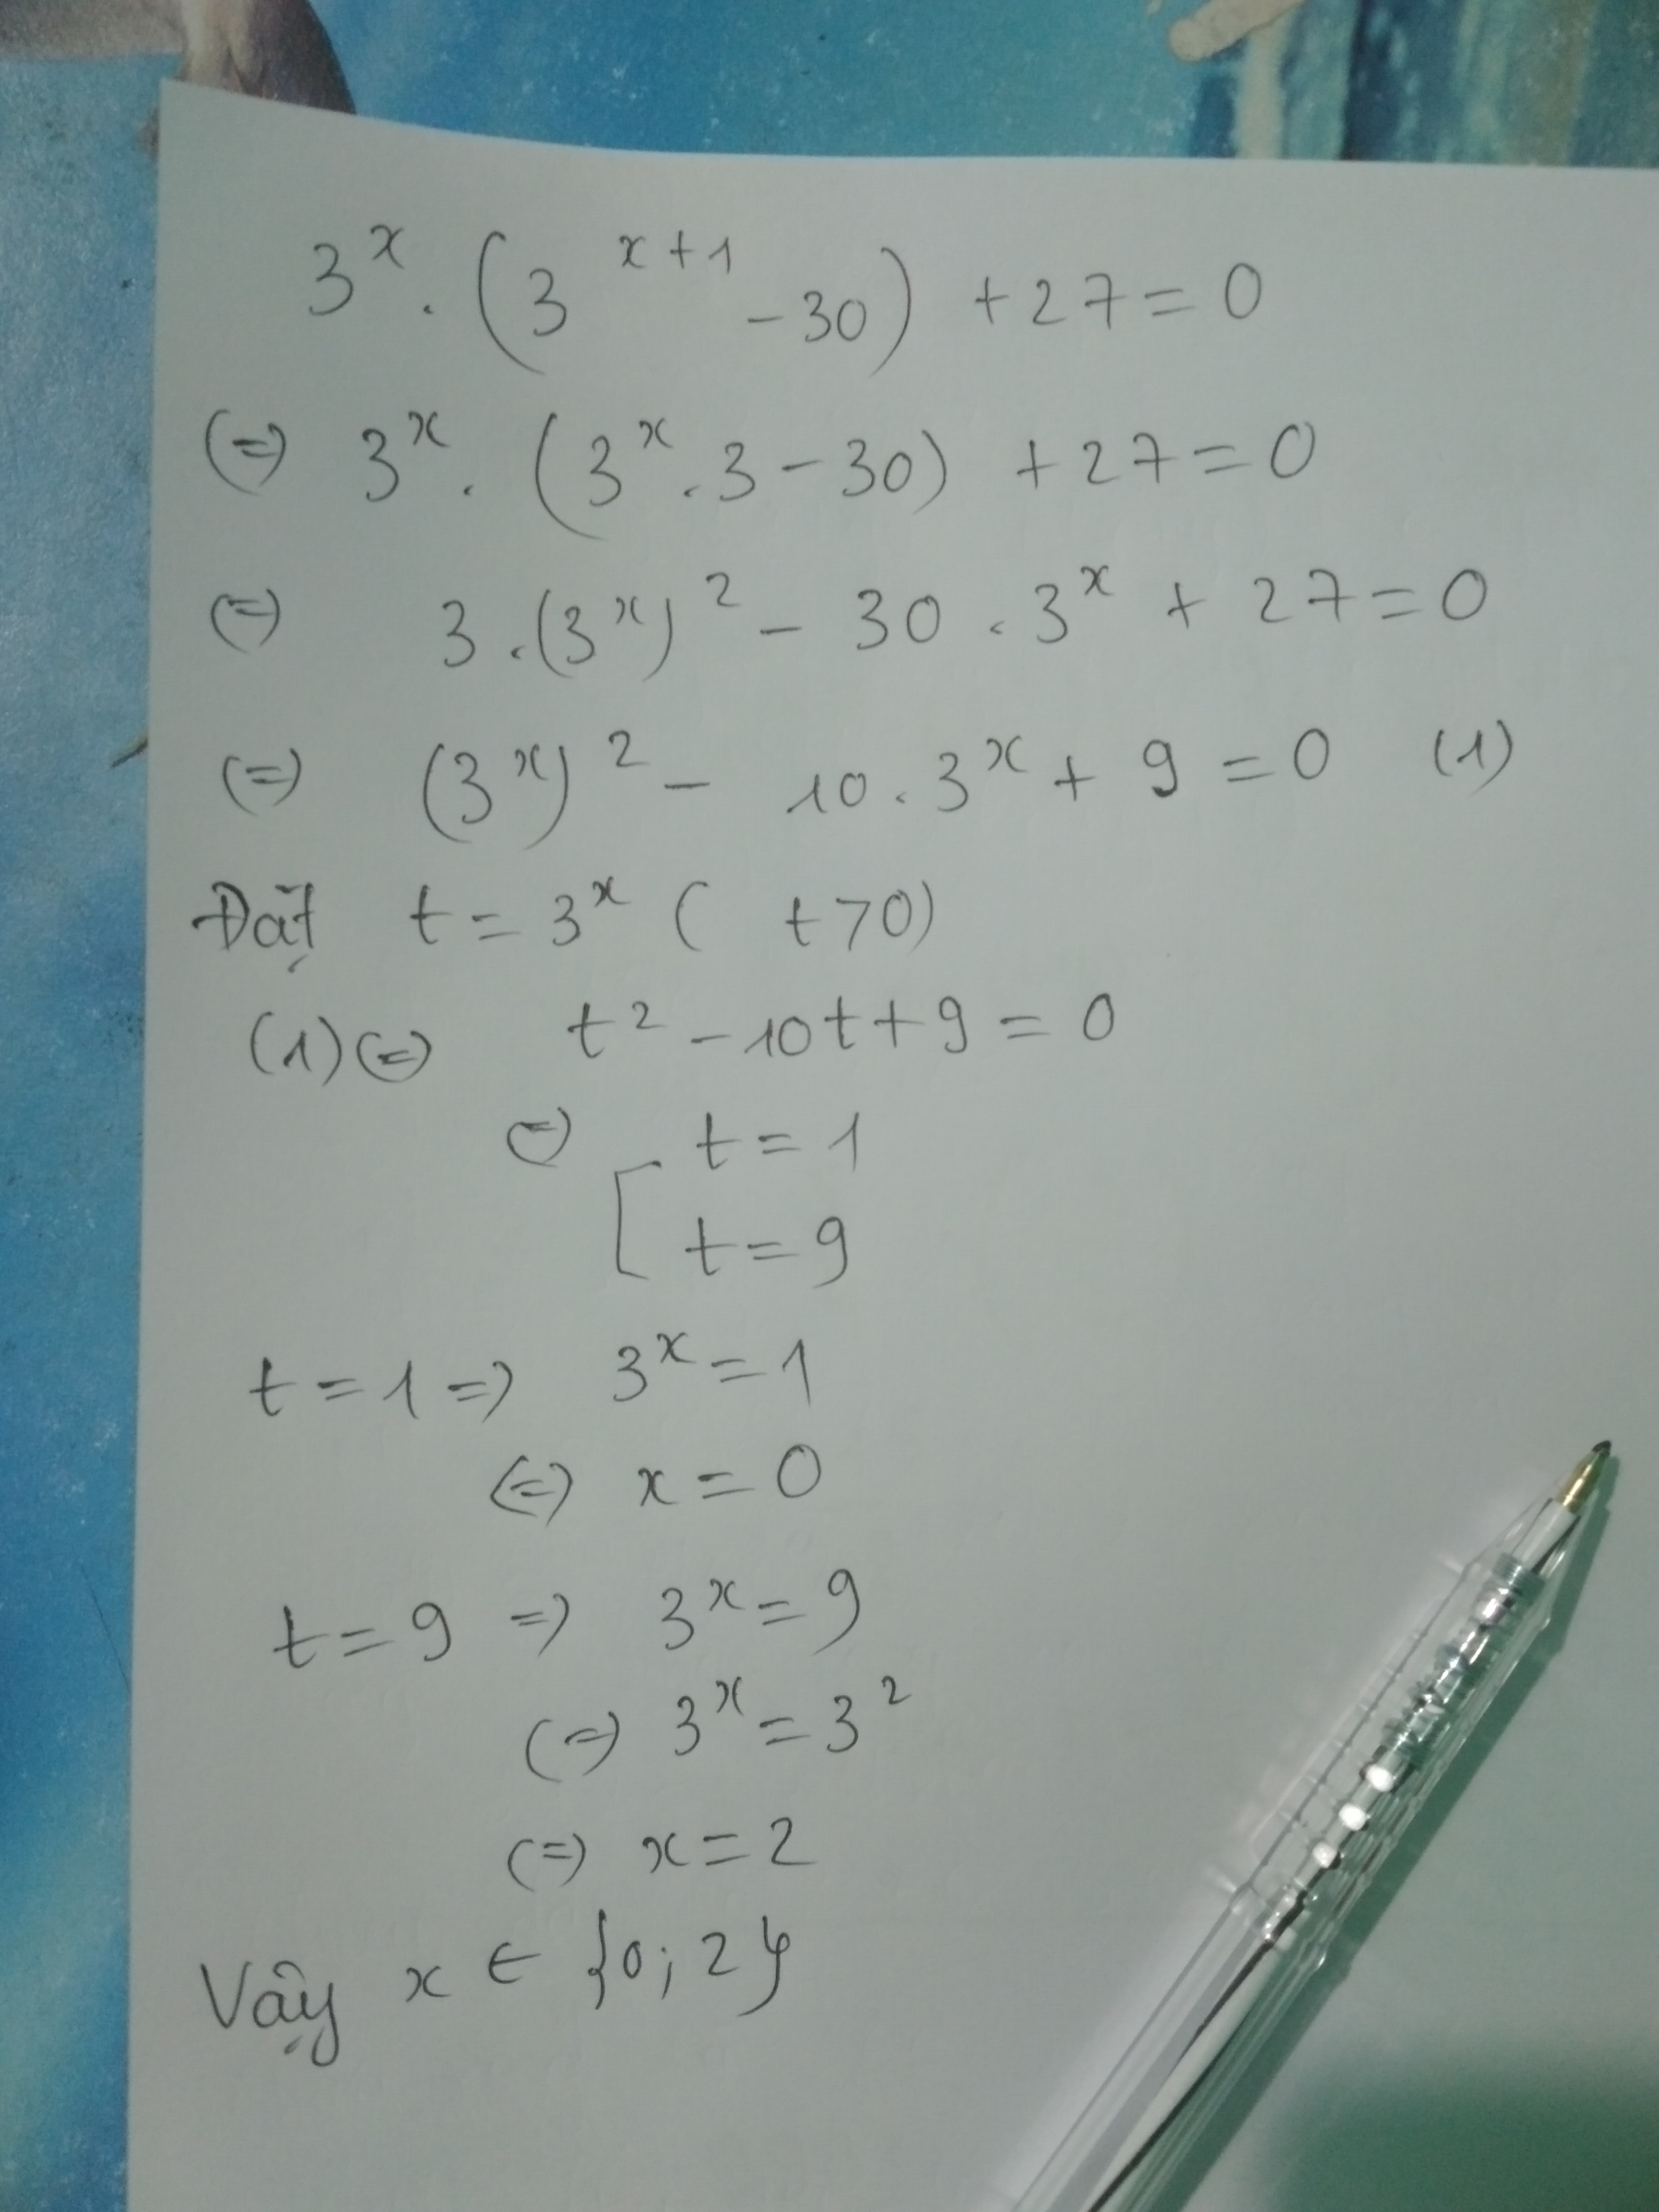 3^x . (3^{x+1} - 30) + 27 = 0
(=) 3^x . (3^x . 3 - 30) + 27 = 0
(=) 3 . (3^x)^2 - 30 . 3^x + 27 = 0
(=) (3^x)^2 - 10 . 3^x + 9 = 0 (1)
Đặt t = 3^x ( t > 0)
(1) (=) t^2 - 10t + 9 = 0
(=) [ t = 1
t = 9
t = 1 => 3^x = 1
(=) x = 0
t = 9 => 3^x = 9
(=) 3^x = 3^2
(=) x = 2
Vậy x ∈ {0; 2}